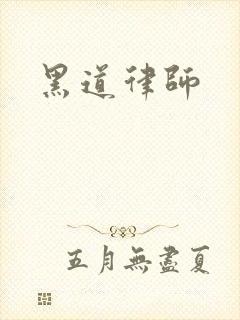 黑道律師
五月無盡夏